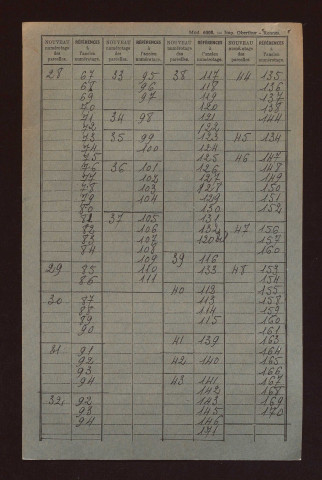 NOUVEAU numérotage des parcelles. RÉFÉRENCES à l'ancien numérotage.
28 67
68
69
70
71
72
73
74
75
76
77
78
79
80
82
83
83
84
29 85
86
30 87
88
89
90
31 91
92
93
94
32 92
93
94
NOUVEAU numérotage des parcelles. RÉFÉRENCES à l'ancien numérotage.
33 95
96
97
34 98
35 99
100
36 101
102
103
104
37 105
106
107
108
109
110
111
NOUVEAU numérotage des parcelles. RÉFÉRENCES à l'ancien numérotage.
38 117
118
119
120
121
122
123
124
125
126
127
128
129
130
131
132
130
39 116
133
40 113
113
114
115
41 139
42 140
43 141
142
143
145
146
171
NOUVEAU numérotage des parcelles. RÉFÉRENCES à l'ancien numérotage.
44 135
136
137
138
144
45 134
46 147
148
149
150
151
152
47 156
157
160
48 153
154
155
158
159
160
161
163
164
165
166
167
168
169
170